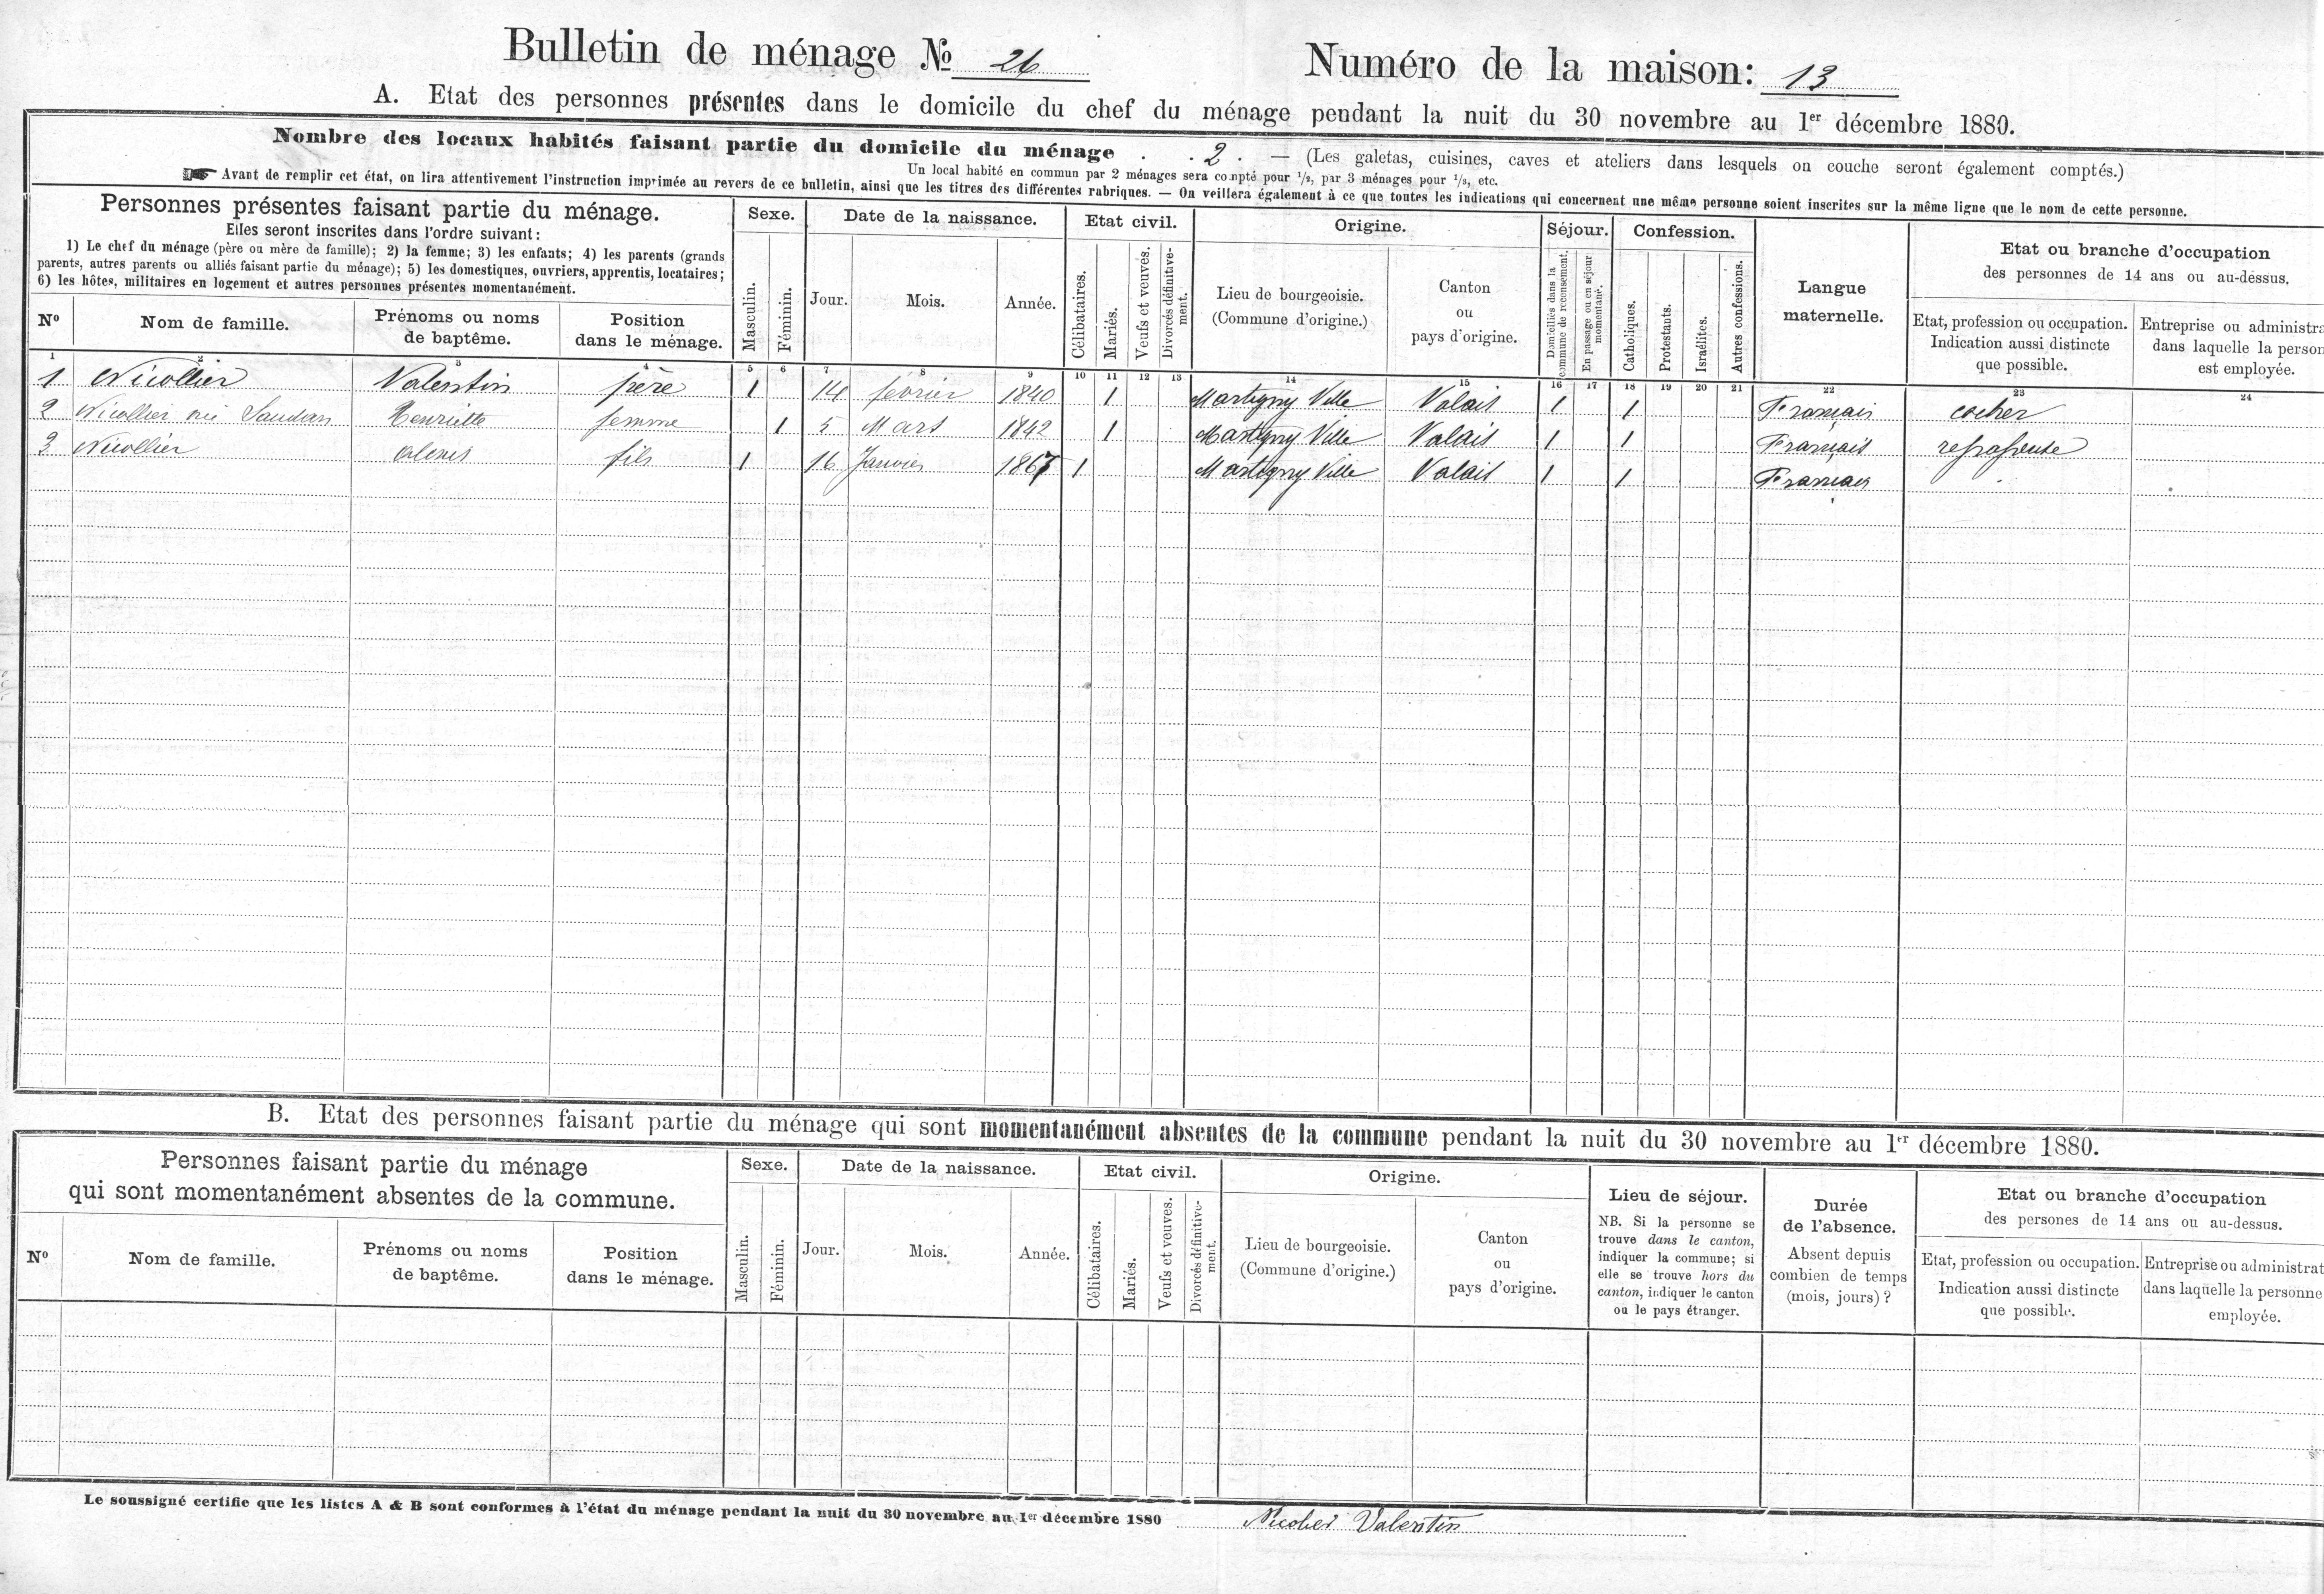 Bulletin de ménage № 26 Numéro de la maison: 13
A. Etat des personnes présentes dans le domicile du chef du ménage pendant la nuit du 30 novembre au 1er décembre 1880.
Nombre des locaux habités faisant partie du domicile du ménage . . 2 . — (Les galetas, cuisines, caves et ateliers dans lesquels on couche seront également comptés.)
Un local habité en commun par 2 ménages sera compté pour 1/2, par 3 ménages pour 1/3, etc.
☛ Avant de remplir cet état, on lira attentivement l'instruction imprimée au revers de ce bulletin, ainsi que les titres des différentes rubriques. — On veillera également à ce que toutes les indications qui concernent une même personne soient inscrites sur la même ligne que le nom de cette personne.
Personnes présentes faisant partie du ménage.
Elles seront inscrites dans l'ordre suivant:
1) Le chef du ménage (père ou mère de famille); 2) la femme; 3) les enfants; 4) les parents (grands
parents, autres parents ou alliés faisant partie du ménage); 5) les domestiques, ouvriers, apprentis, locataires;
6) les hôtes, militaires en logement et autres personnes présentes momentanément.
Nº Nom de famille. Prénoms ou noms de baptême. Position dans le ménage.
Sexe. Masculin. Féminin.
Date de la naissance. Jour. Mois. Année.
Etat civil. Célibataires. Mariés. Veufs et veuves. Divorcés définitive-
ment.
Origine. Lieu de bourgeoisie. (Commune d'origine.) Canton ou pays d'origine.
Séjour. Domiciliés dans la
commune de recensement. En passage ou en séjour
momentané.
Confession. Catholiques. Protestants. Israélites. Autres confessions.
Langue maternelle.
Etat ou branche d'occupation
des personnes de 14 ans ou au-dessus.
Etat, profession ou occupation. Indication aussi distincte que possible.
Entreprise ou administra
dans laquelle la person
est employée.
1 2 3 4 5 6 7 8 9 10 11 12 13 14 15 16 17 18 19 20 21 22 23 24
1 Nicollier Valentin père 1 14 février 1840 1 Martigny Ville Valais 1 1 Français cocher
2 Nicollier née Saudan Henriette femme 1 5 Mars 1842 1 Martigny Ville Valais 1 1 Français
3 Nicollier Alexis fils 1 16 Janvier 1867 1 Martigny Ville Valais 1 1 Français
B. Etat des personnes faisant partie du ménage qui sont momentanément absentes de la commune pendant la nuit du 30 novembre au 1er décembre 1880.
Personnes faisant partie du ménage
qui sont momentanément absentes de la commune.
Nº Nom de famille. Prénoms ou noms de baptême. Position dans le ménage.
Sexe. Masculin. Féminin.
Date de la naissance. Jour. Mois. Année.
Etat civil. Célibataires. Mariés. Veufs et veuves. Divorcés définitive-
ment.
Origine. Lieu de bourgeoisie. (Commune d'origine.) Canton ou pays d'origine.
Lieu de séjour.
NB. Si la personne se
trouve dans le canton,
indiquer la commune; si
elle se trouve hors du
canton, indiquer le canton
ou le pays étranger.
Durée
de l'absence.
Absent depuis
combien de temps
(mois, jours)?
Etat ou branche d'occupation
des persones de 14 ans ou au-dessus.
Etat, profession ou occupation. Indication aussi distincte que possible.
Entreprise ou administrat
dans laquelle la personne
employée.
Le soussigné certifie que les listes A & B sont conformes à l'état du ménage pendant la nuit du 30 novembre au 1er décembre 1880 Nicolier Valentin